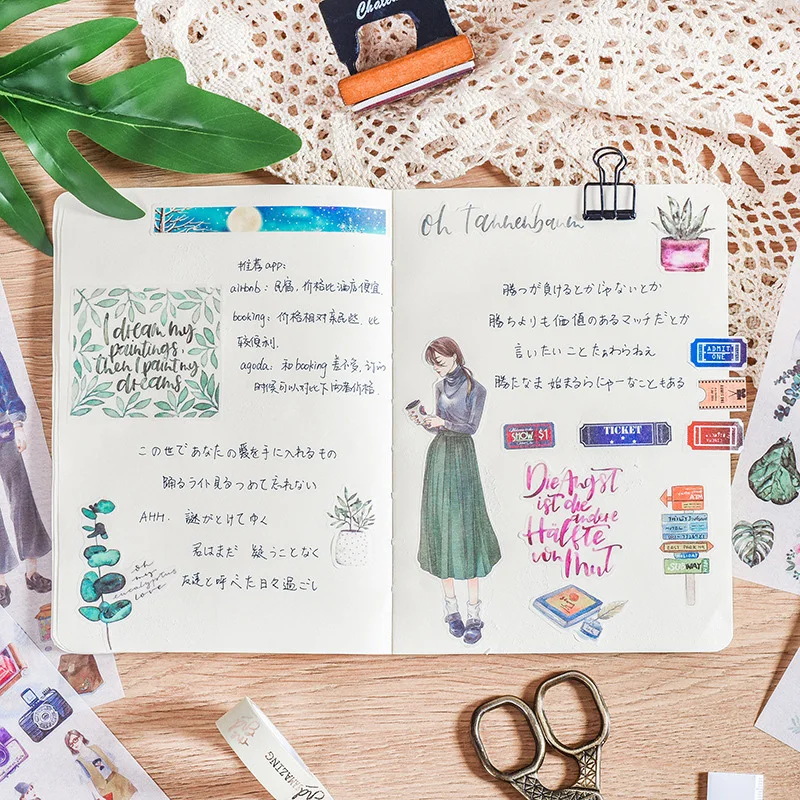 oh Tannenbaum
推荐app:
airbnb: 民宿，价格比酒店便宜.
booking: 价格相对亲民些，比
较便利.
agoda: 和booking差不多，订的
时候可以对比下两者价格.
I dream my
paintings,
then I paint my
dreams
この世であなたの愛を手に入れるもの
踊るライト見るつめて忘れない
AHH. 謎がとけてゆく
君はまだ 疑うことなく
友達と呼べた日々過ごし
oh
my
eucalyptus
love
勝つが負けるとかじゃないとか
勝ちよりも価値のあるマッチだとか
言いたいことたぁわらねえ
勝たなま 始まるらにゃーなこともある
ADMIT
ONE
SHOW $1
TICKET
Die Angst
ist die
andere
Hälfte
von Mut
SUBWAY
AMAZING